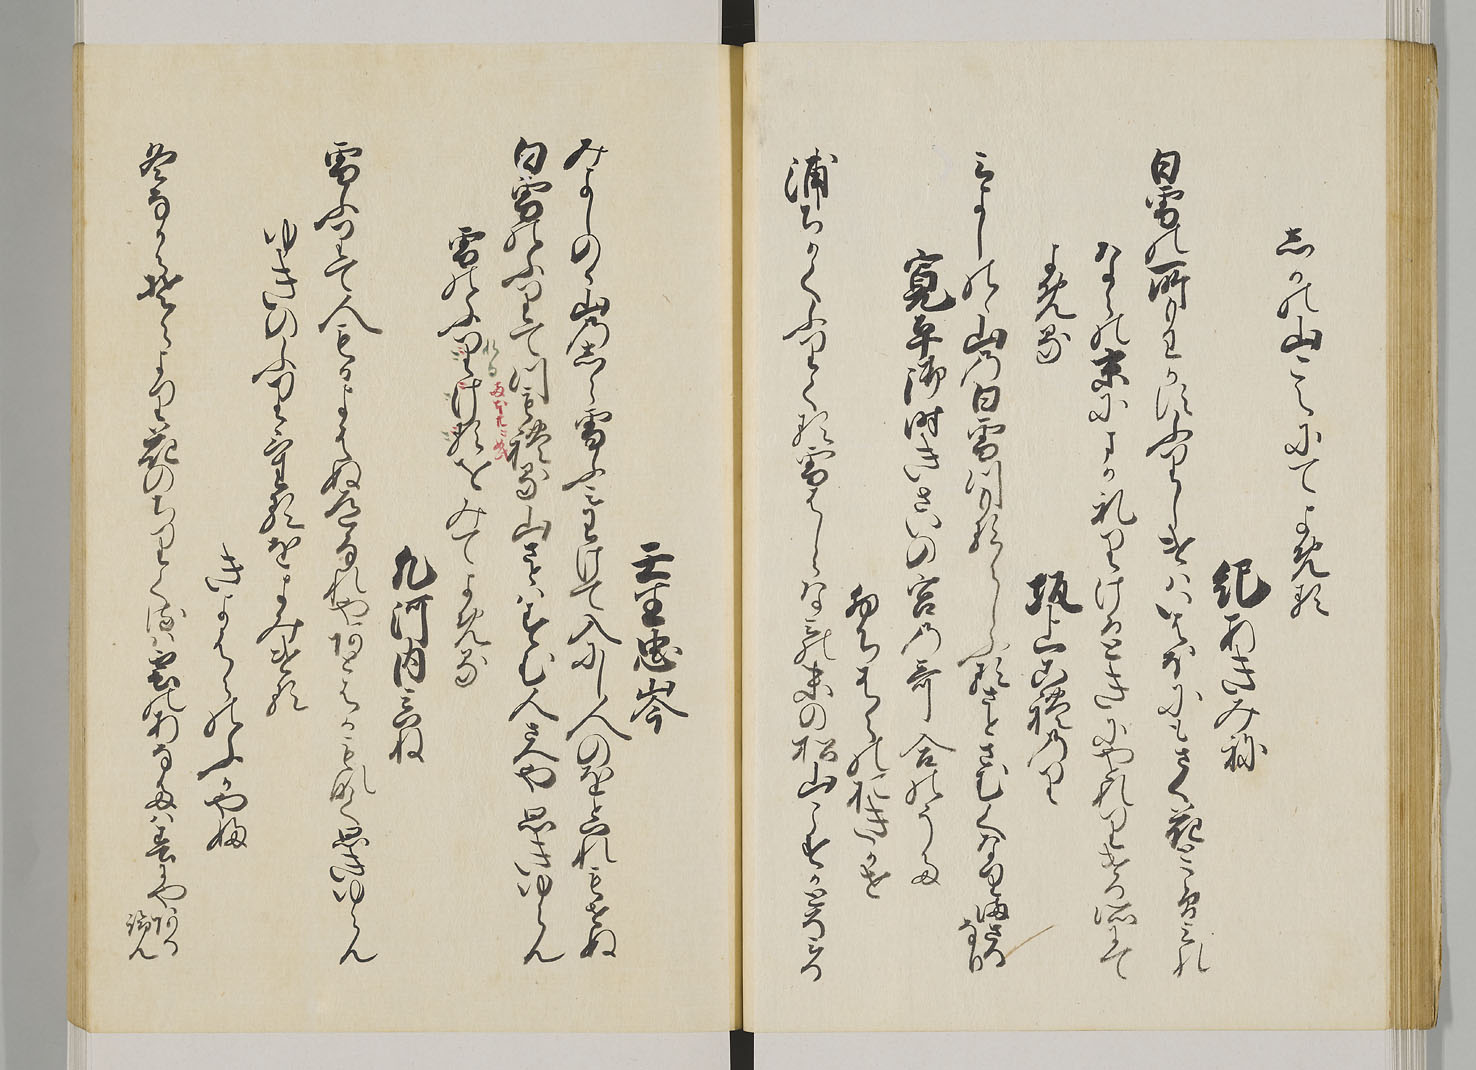 志かの山こえにてよめる
紀あきみね
白雪の所もわかすふりしけはいはほにもさく花とこそみれ
ならの京にまかれりけるときにやとれりける所にて
よめる
坂上これのり
みよしのゝ山の白雪つもるらしふるさとさむくなりまさるなり
寛平御時きさいの宮の哥合のうた
ふちはらのおきかせ
浦ちかくふりくる雪はしらなみの末の松山こすかとそみる
壬生忠岑
みよしのゝ山の志ら雪ふみわけて入にし人のをとつれもせぬ
白雪のふりてつもれる山さとはすむ人さへや思きゆらん
雪のふりけるをみてよめる
凡河内みつね
雪ふりて人もかよはぬ道なれやあとはかもなく思きゆらん
ゆきのふりけるをよみける
きよはらのふかやふ
冬なからそらより花のちりくるは雲のあなたは春にやあるらん